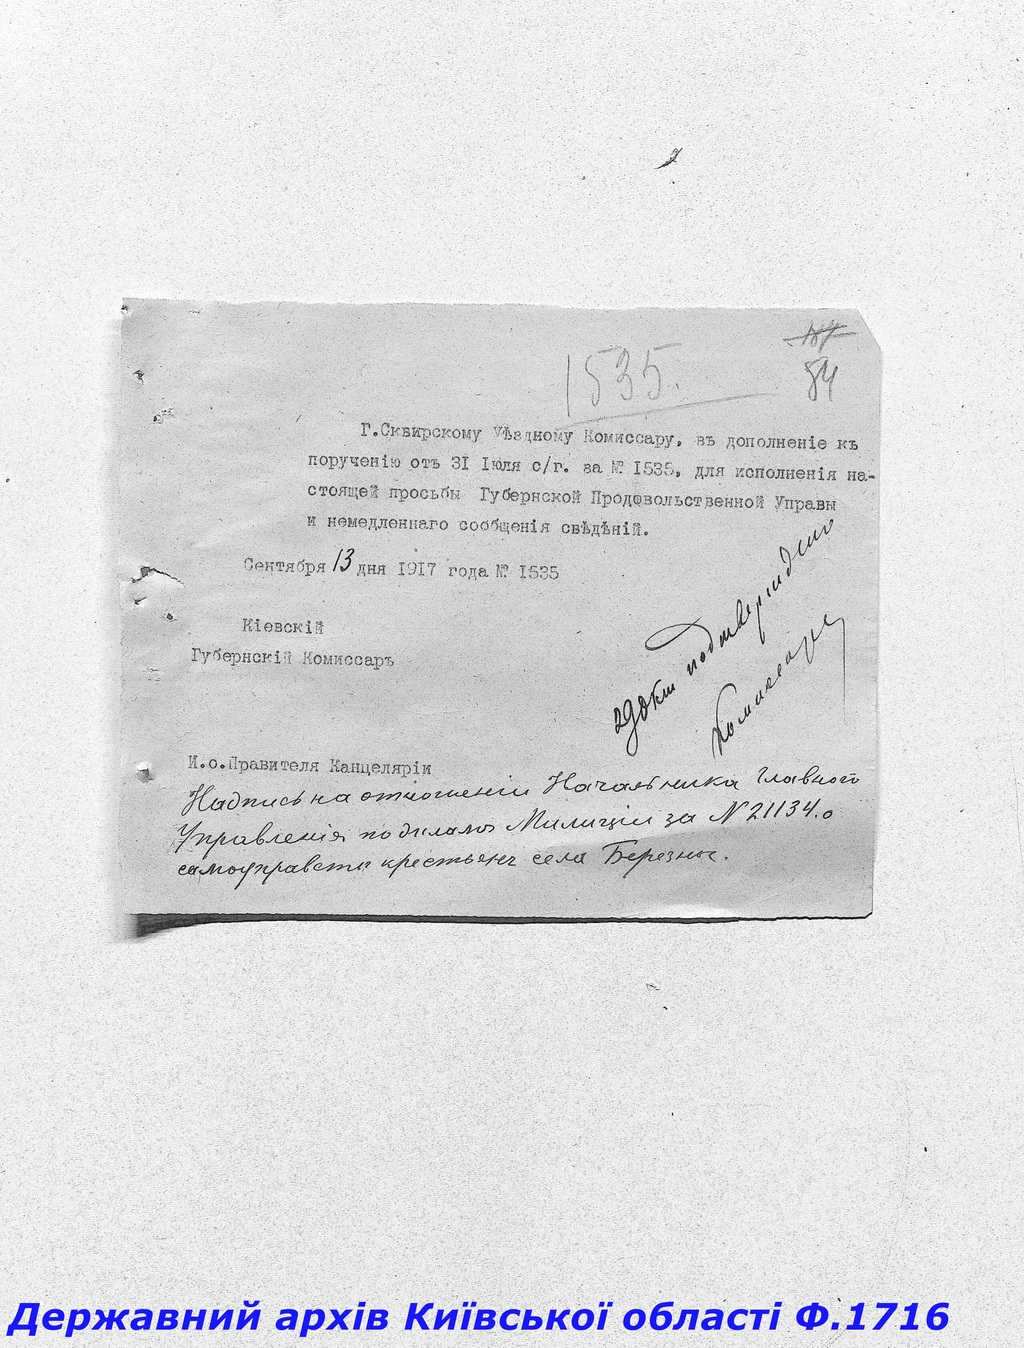 84
1535.
Г.Сквирскому Уѣздному Комиссару, въ дополненіе къ
порученію отъ 3I Іюля с/г. за № I535, для исполненія на-
стоящей просьбы Губернской Продовольственной Управы
и немедленнаго сообщенія свѣдѣній.
Сентября 13 дня I9I7 года № I535
Кіевскій
Губернскій Комиссаръ
подтвердит
Комиссару
И.о.Правителя Канцеляріи
Надпись на отношеніи Начальника Главного
Управленія по дѣламъ Милиціи за N 21134. о
самоуправствѣ крестьянъ села Березно.
Державний архів Київської області Ф.1716